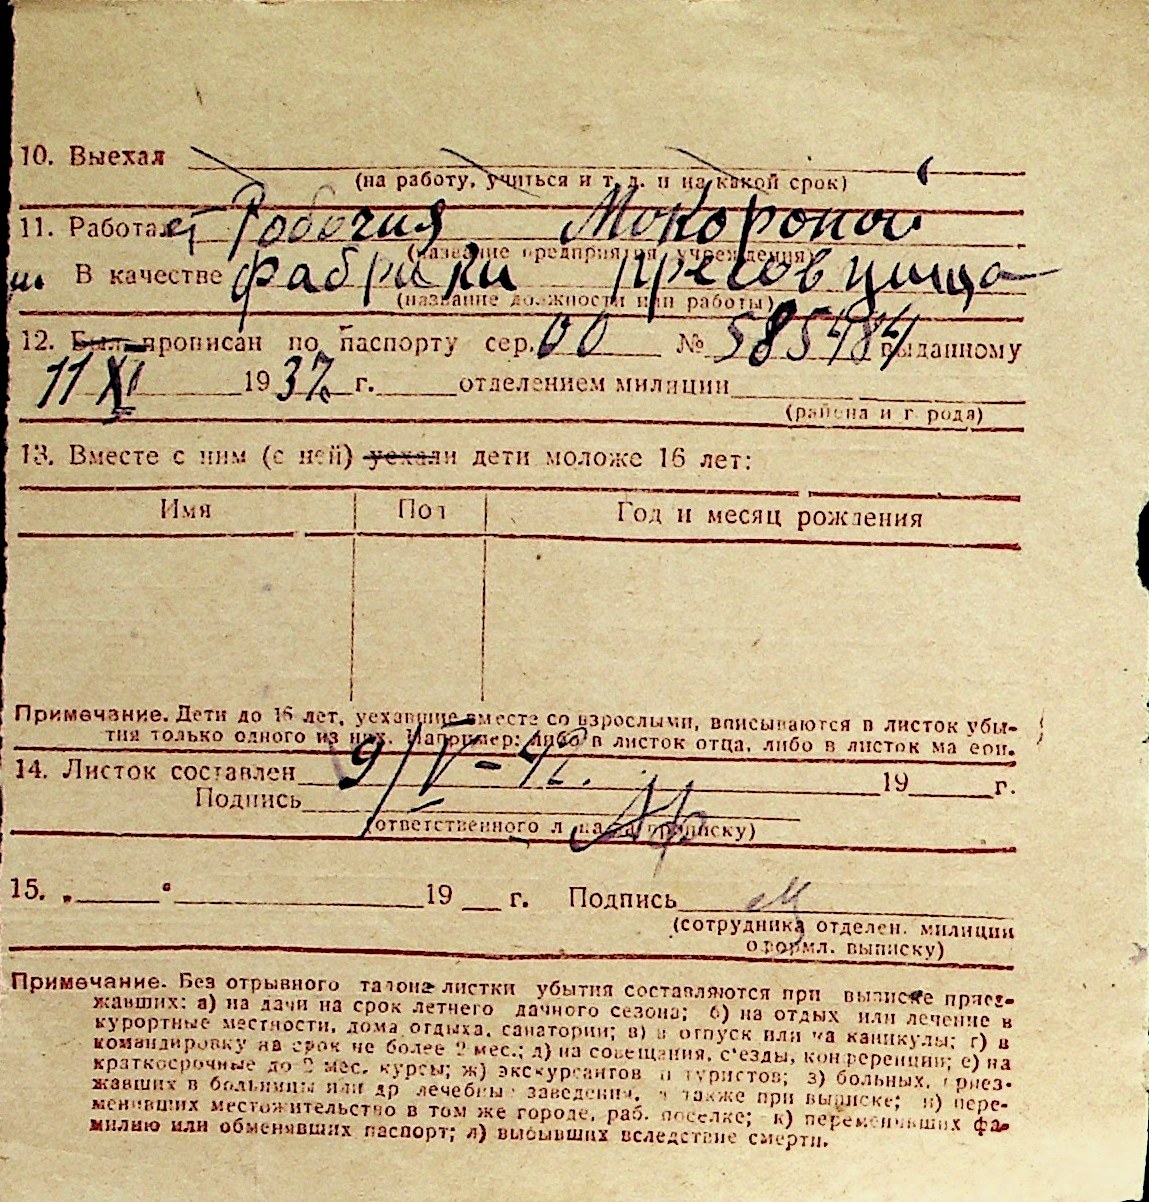 10. Выехал
(на работу, учиться и т. д. и на какой срок)
11. Работает Рабочия Мокороной
(название предприятия, учреждения)
В качестве фабрики пресовщица
(название должности или работы)
12. Был прописан по паспорту сер. 00 № 585484 выданному
11 XI 1937 г. отделением милиции
(района и города)
13. Вместе с ним (с ней) уехали дети моложе 16 лет:
Имя Пол Год и месяц рождения
Примечание. Дети до 16 лет, уехавшие вместе со взрослыми, вписываются в листок убы-
тия только одного из них. Например: либо в листок отца, либо в листок матери.
14. Листок составлен 9/V-42. 19 г.
Подпись
(ответственного лица за прописку)
15. „ " 19 г. Подпись
(сотрудника отделен. милиции
оформл. выписку)
Примечание. Без отрывного талона листки убытия составляются при выписке приез-
жавших: а) на дачи на срок летнего дачного сезона; б) на отдых или лечение в
курортные местности, дома отдыха, санатории; в) в отпуск или на каникулы; г) в
командировку на срок не более 2 мес.; д) на совещания, с'езды, конференции; е) на
краткосрочные до 2 мес. курсы; ж) экскурсантов и туристов; з) больных, приез-
жавших в больницы или др лечебные заведения, а также при выписке; и) пере-
менивших местожительство в том же городе, раб. поселке; к) переменивших фа-
милию или обменявших паспорт; л) выбывших вследствие смерти.